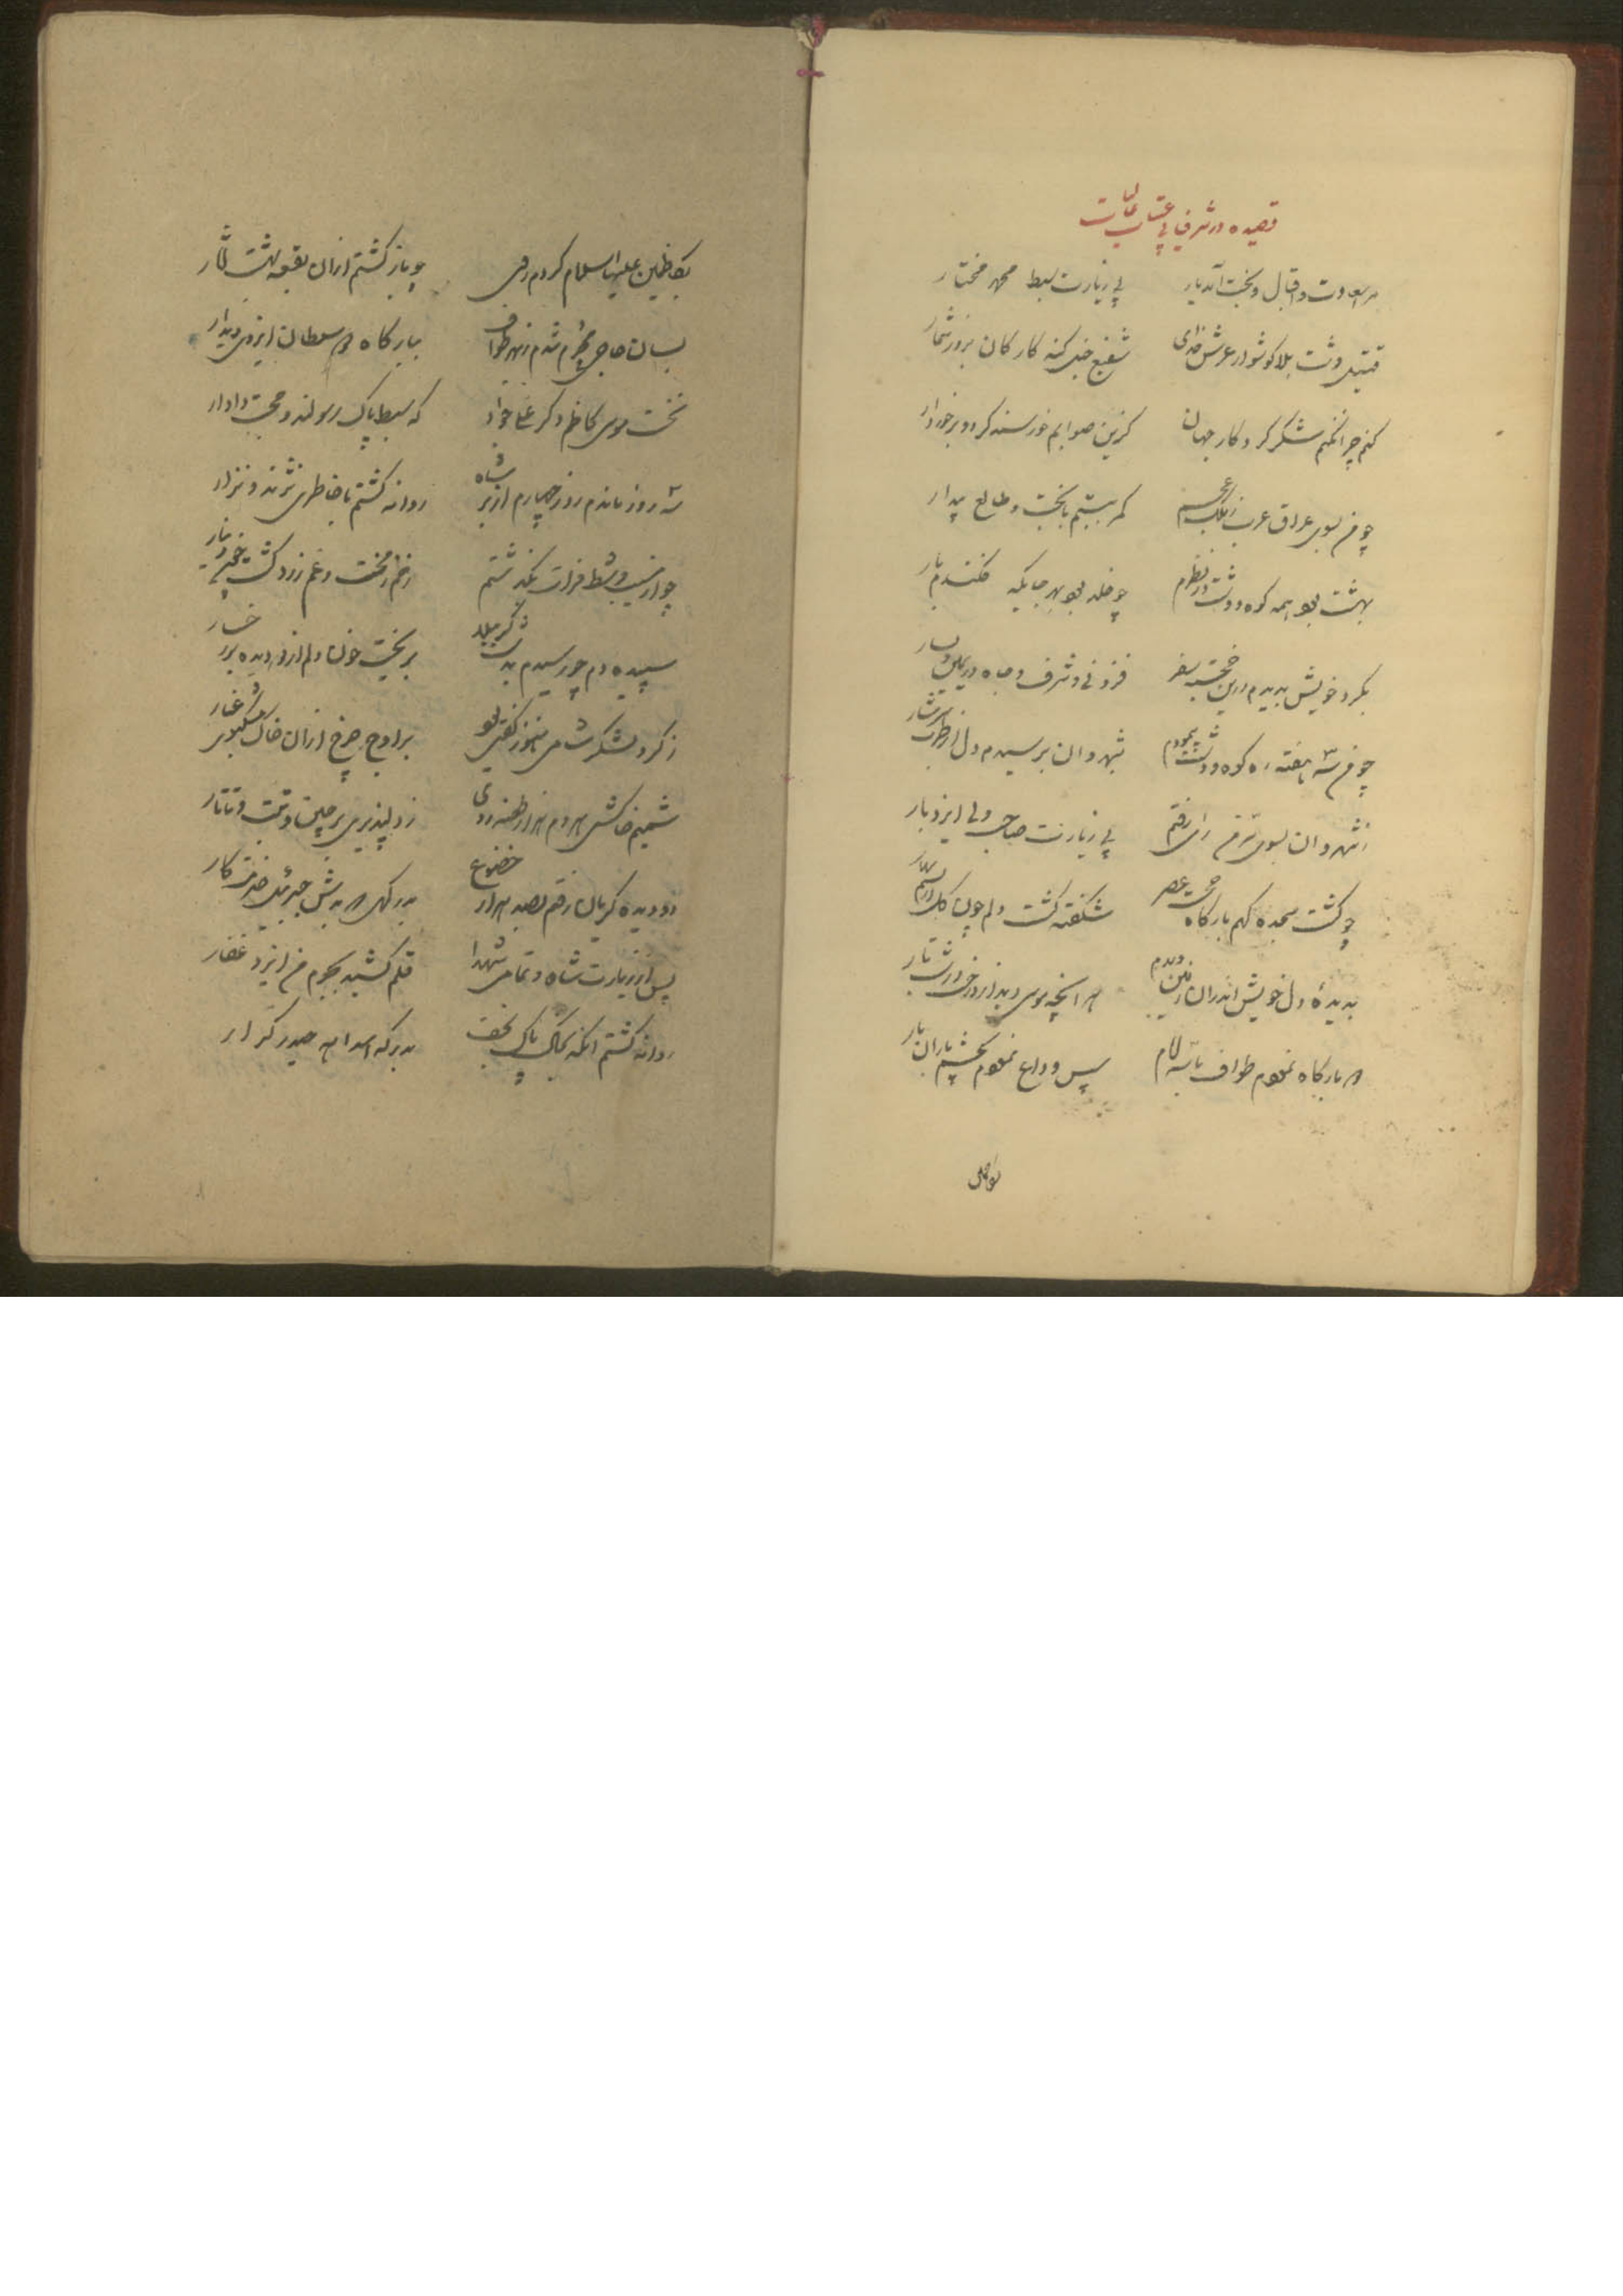 قصیده در شرفیابی عتبات عالیات
مرا سعادت و اقبال و بخت آمد یار پی زیارت سبط محمد مختار
قتیل دشت بلا گوشوار عرش خدای شفیع خیل گنه کارکان بروز شمار
کنم چرا نکنم شکر کردکار جهان کزین صوابم خورسند کرد و برخوردار
چو من بسوی عراق عرب ز ملک عجم کمر ببستم با بخت و طالع بیدار
بهشت بود همه کوه و دشت در نظرم چو خلد بود بهر جایکه فکندم بار
بکرد خویش بدیدم درین خجسته سفر فزونی و شرف و جاه در یمین و یسار
چو من سه هفته ره کوه و دشت پیمودم بشهروان برسیدم دل از طرب سرشار
ز شهروان بسوی سر من رای رفتم پی زیارت صاحب ولی ایزد بار
چو کشت سجده کهم بارکاه حجت عصر شکفته کشت دلم چون کل
بدیدهٔ دل خویش اندران زمین دیدم هر آنچه موسی دید از درخت در شب تار
بارکاه نمودم طواف با سه امام پس وداع نمودم بچشم باران بار
بکاظمین
بکاظمین علیهما السلام کردم روی چو باز کشتم ازان بقعه بهشت آثار
بسان حاجی محرم شدم ز بهر طواف ببارکاه دو سلطان ایزدی دیدار
نخست موسی کاظم دکر جواد که سبط پاک رسولند و حجت دادار
سه روز ماندم روز چهارم از بر شاه روانه کشتم با خاطری نژند و نزار
چو از مسیب و شط فرات بکذشتم
سپیده دم چو رسیدم بدشت کرببلا بریخت خون دلم از دو دیده بر رخسار
ز کرد لشکر شامی هنوز کفتی بود بر اوج چرخ ازان خاک مشکبوی غبار
شمیم خاکش هر دم هزار طعنه زدی ز دلپذیری بر چین و تبت و تاتار
دو دیده کریان رفتم بصد هزار خضوع بدرکهی که بدش جبرئیل خدمتکار
پس از زیارت شاه و تمامی شهدا قلم کشید بجرم من ایزد غفار
روانه کشتم آنکه بخاک پاک نجف بدرکه اسد الله حیدر کرار